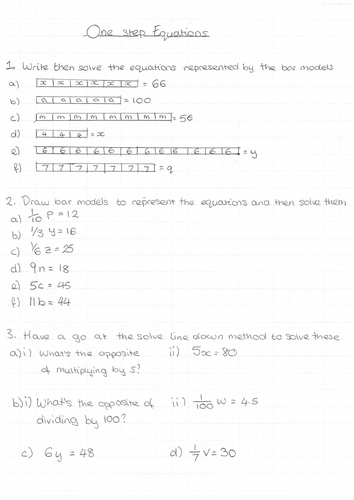 One step Equations
1. Write then solve the equations represented by the bar models
a) x x x x x x = 66
b) a a a a a = 100
c) m m m m m m m = 56
d) 4 4 4 = x
e) 6 6 6 6 6 6 6 6 6 6 6 = y
f) 7 7 7 7 7 7 7 = q
2. Draw bar models to represent the equations and then solve them
a) 1/10 p = 12
b) 1/3 y = 16
c) 1/6 z = 25
d) 9n = 18
e) 5c = 45
f) 11b = 44
3. Have a go at the solve line down method to solve these
a) i) What's the opposite of multiplying by 5?
ii) 5x = 80
b) i) What's the opposite of dividing by 100?
ii) 1/100 w = 4.5
c) 6y = 48
d) 1/7 v = 30